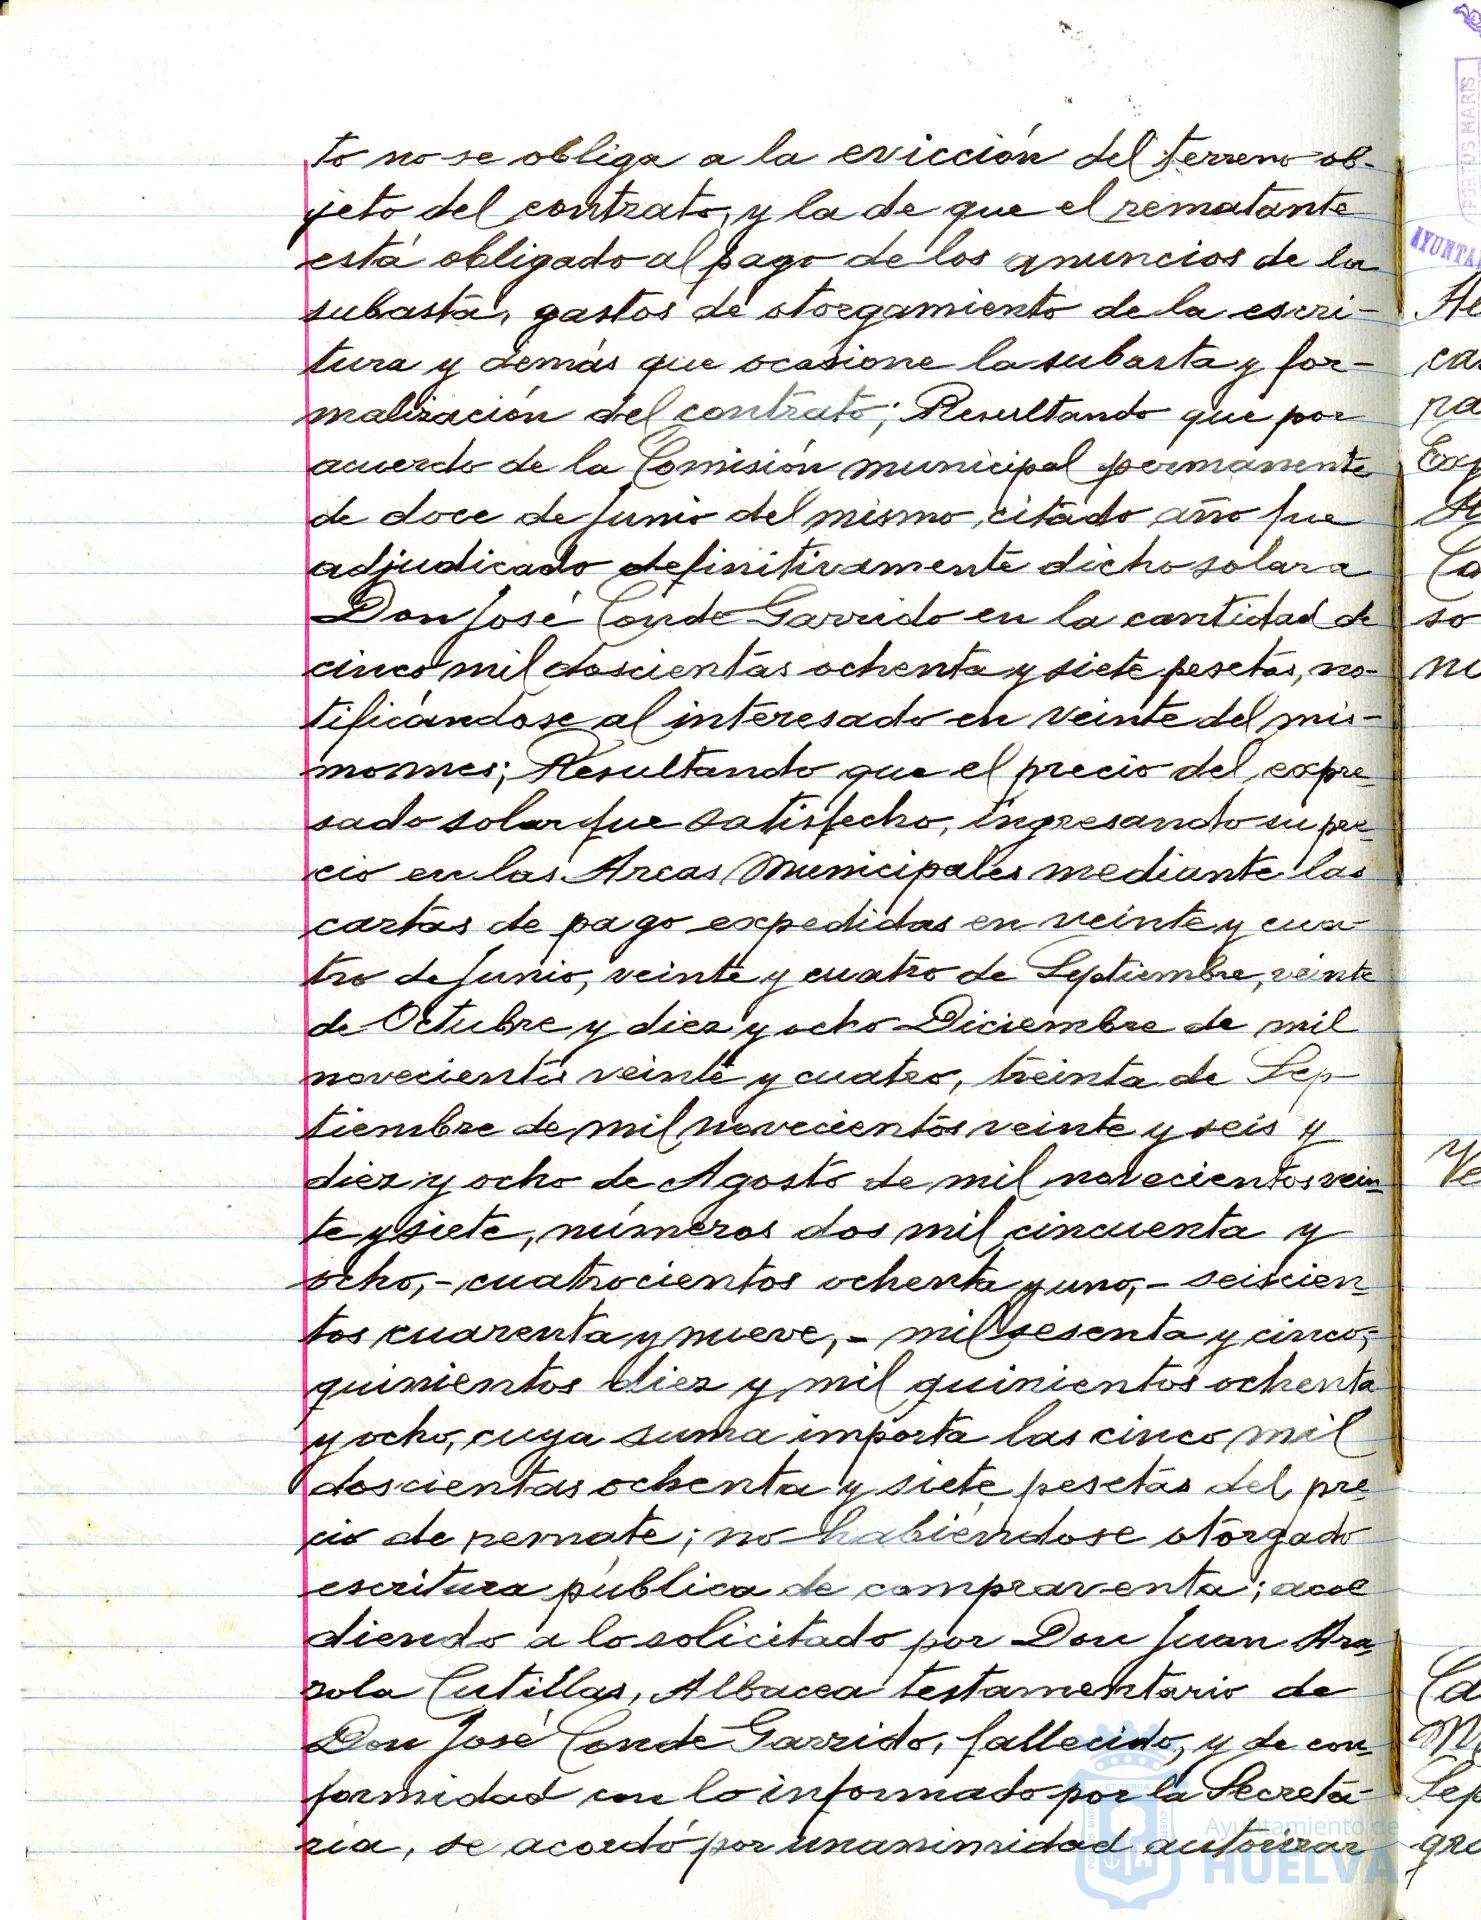 to no se obliga a la evicción del terreno ob-
jeto del contrato, y la de que el rematante
está obligado al pago de los anuncios de la
subasta, gastos de otorgamiento de la escri-
tura y demás que ocasione la subasta y for-
malización del contrato; Resultando que por
acuerdo de la Comisión municipal permanente
de doce de Junio del mismo citado año fue
adjudicado definitivamente dicho solar a
Don José Conde Garrido en la cantidad de
cinco mil doscientas ochenta y siete pesetas, no-
tificándose al interesado en veinte del mis-
mo mes; Resultando que el precio del expre-
sado solar fue satisfecho, ingresando su pre-
cio en las Arcas Municipales mediante las
cartas de pago expedidas en veinte y cua-
tro de Junio, veinte y cuatro de Septiembre, veinte
de Octubre y diez y ocho Diciembre de mil
novecientos veinte y cuatro, treinta de Sep-
tiembre de mil novecientos veinte y seis y
diez y ocho de Agosto de mil novecientos vein-
te y siete, números dos mil cincuenta y
ocho,- cuatrocientos ochenta y uno,- seiscien-
tos cuarenta y nueve,- mil sesenta y cinco,-
quinientos diez y mil quinientos ochenta
y ocho, cuya suma importa las cinco mil
doscientas ochenta y siete pesetas del pre-
cio de remate; no habiéndose otorgado
escritura pública de compraventa; acce
diendo a lo solicitado por Don Juan Ara-
zola Cutillas, Albacea testamentario de
Don José Conde Garrido, fallecido, y de con-
formidad con lo informado por la Secreta-
ría, se acordó por unanimidad autorizar
PORTUS MARIS
AYUNTA
Ayuntamiento de
HUELVA